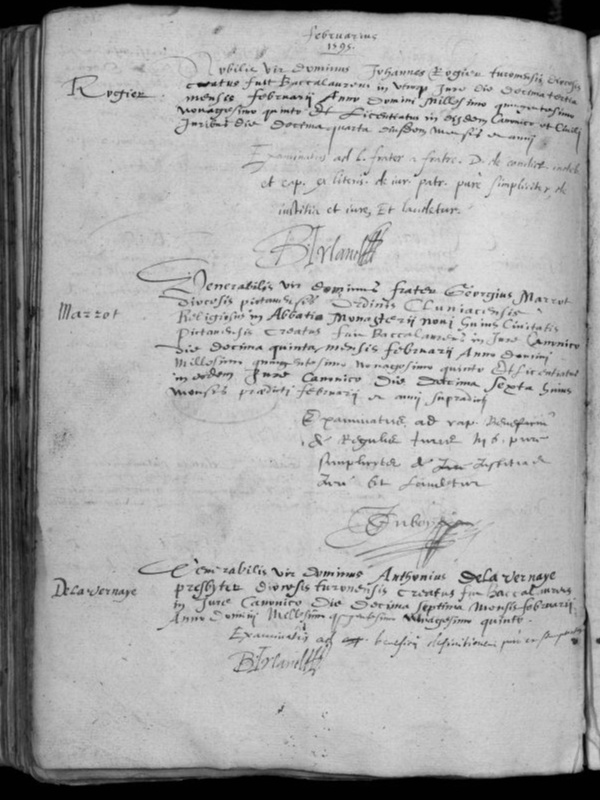 februarius
1595.
Rogier
Nobilis vir dominus Johannes Rogier turonensis diocesis
creatus fuit Baccalaureus in utroq Jure die decima tertia
mensis februarii Anno Domini Millesimo quingentesimo
nonagesimo quinto Et Licentiatus in eisdem Canonico et Civili
Juribus die decima quarta eiusdem mensis et anni
Examinatus ad l. frater a fratre. D. de condict. indeb.
et cap. de iur. patr. pure simpliciter de
iustitia et iure, Et laudetur.
B Irland
Venerabilis vir dominus frater Georgius Marrot
Marrot
diocesis pictauensis ordinis Cluniacensis
Religiosus in Abbatia Monasterii noui huius Ciuitatis
Pictauensis Creatus fuit Baccalaureus in Jure Canonico
die decima quinta mensis februarii Anno Domini
Millesimo quingentesimo nonagesimo quinto Et Licentiatus
in eodem Jure Canonico Die Decima Sexta huius
mensis praedicti februarii et anni supradicti
Examinatus ad cap. Beneficium
de Regulis Juris in 6. pure
simpliciter de Justitia et
Jure Et Laudetur
Venerabilis vir dominus Anthonius Delavernaye
Delavernaye
presbyter diocesis turonensis Creatus fuit baccalaureus
in Jure Canonico Die Decima Septima mensis februarii
Anno Domini Millesimo quingentesimo Nonagesimo quinto.
Examinatus ad beneficii definitionem pure et simpliciter
B Irland